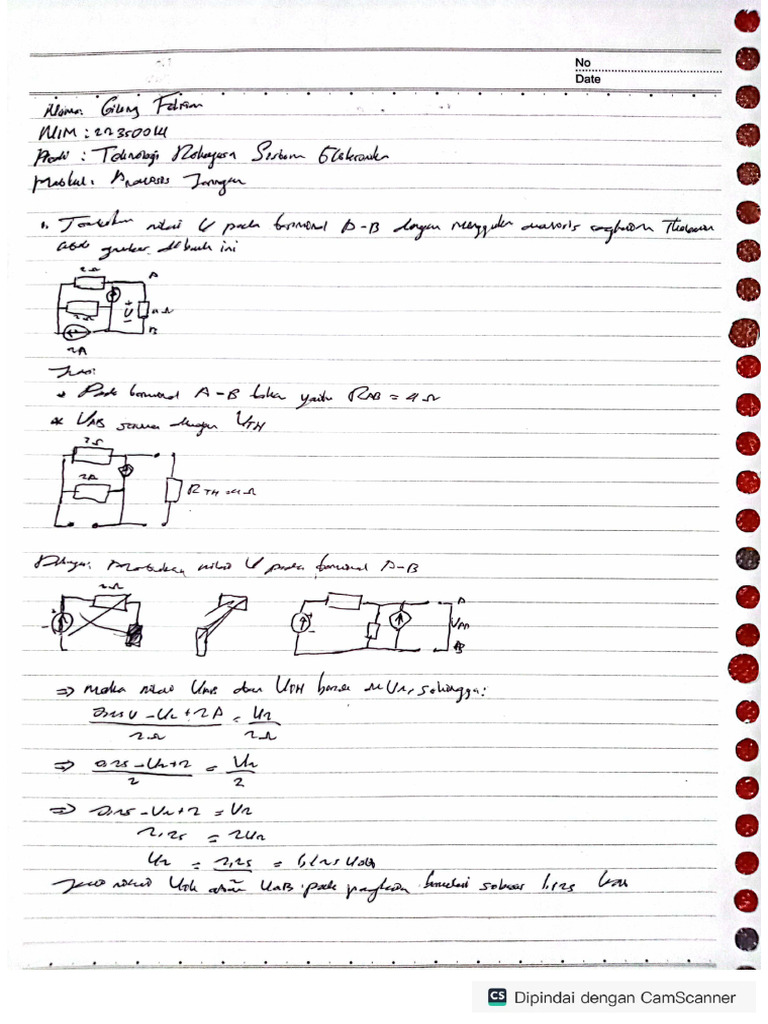 No
Date
Nama: Gilang Febrian
NIM : 22350014
Prodi : Teknologi Rekayasa Sistem Elektronika
Matkul : Analisis Jaringan
1. Tentukan nilai V pada terminal A-B dengan menggunakan analisis rangkaian Thevenin
dibawah ini
2Ω
A
2Ω
+
V
-
4Ω
B
2A
* Pada terminal A-B yaitu RAB = 4Ω
* VAB sama dengan VTH
2Ω
2A
RTH = 4Ω
nilai V pada terminal A-B
2Ω
+
-
A
VAB
B
=> maka nilai VAB dan VTH sehingga:
0,25V - V2 + 2A = V2
2Ω 2Ω
=> 0,25 - V2 + 2 = V2
2 2
=> 0,25 - V2 + 2 = V2
2,25 = 2V2
V2 = 2,25 = 1,125 Volt
2
nilai Vth atau VAB pada rangkaian sebesar 1,125 Volt
CS Dipindai dengan CamScanner